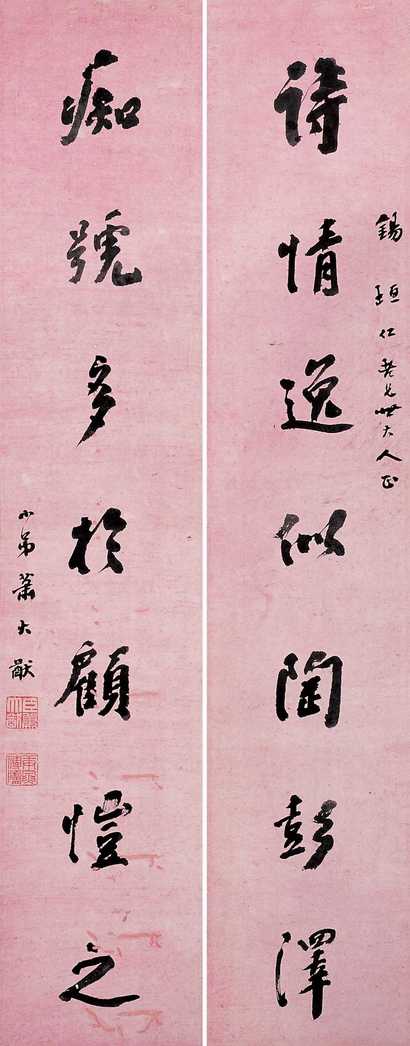 錫垣仁老兄世大人正
詩情逸似陶彭澤
痴號多於顧愷之
小弟蕭大猷